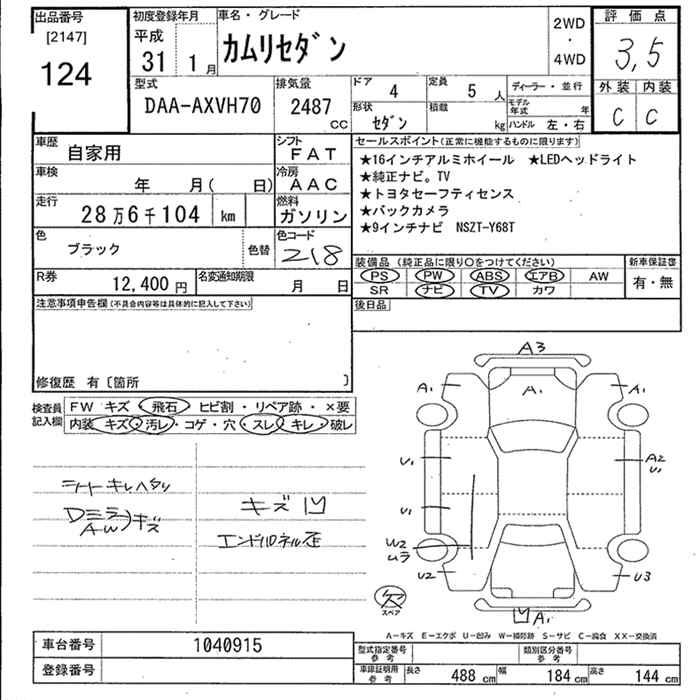 出品番号 初度登録年月 車名・グレード 2WD 評価点
[2147] 平成 カムリセダン ・ 3,5
124 31 1月 4WD 外装 内装
型式 排気量 ドア 4 定員 5人 ディーラー・並行 C C
DAA-AXVH70 2487 CC 形状 セダン 積載 kg モデル年式 年
ハンドル 左・右
車歴 自家用 シフト FAT セールスポイント(正常に機能するものに限ります)
車検 年 月( 日) 冷房 AAC ★16インチアルミホイール ★LEDヘッドライト
走行 28万6千104 km 燃料 ガソリン ★純正ナビ。TV
★トヨタセーフティセンス
★バックカメラ
★9インチナビ NSZT-Y68T
色 ブラック 色替 色コード 218
装備品(純正品に限り○をつけてください) 新車保証書
R券 12,400円 名変通知期限 月 日 PS PW ABS エアB AW 有・無
SR ナビ TV カワ
注意事項申告欄(不具合内容等は具体的に記入して下さい) 後日品
修復歴 有〔箇所 〕
検査員記入欄 FW キズ・飛石・ヒビ割・リペア跡・×要
内装 キズ・汚レ・コゲ・穴・スレ・キレ・破レ
A3
A1 A1 A1
U1 A2
U1
U1
W2
ムラ
U2 U3
凹 A1
シートキレヘタリ
キズ 凹
Dミラ
AW キズ
エンドパネル歪
欠
スペア
A-キズ E-エクボ U-凹み W-補修跡 S-サビ C-腐食 XX-交換済
車台番号 1040915 型式指定番号 参考 類別区分番号 参考
登録番号 車庫証明用 参考 長さ 488 cm 幅 184 cm 高さ 144 cm